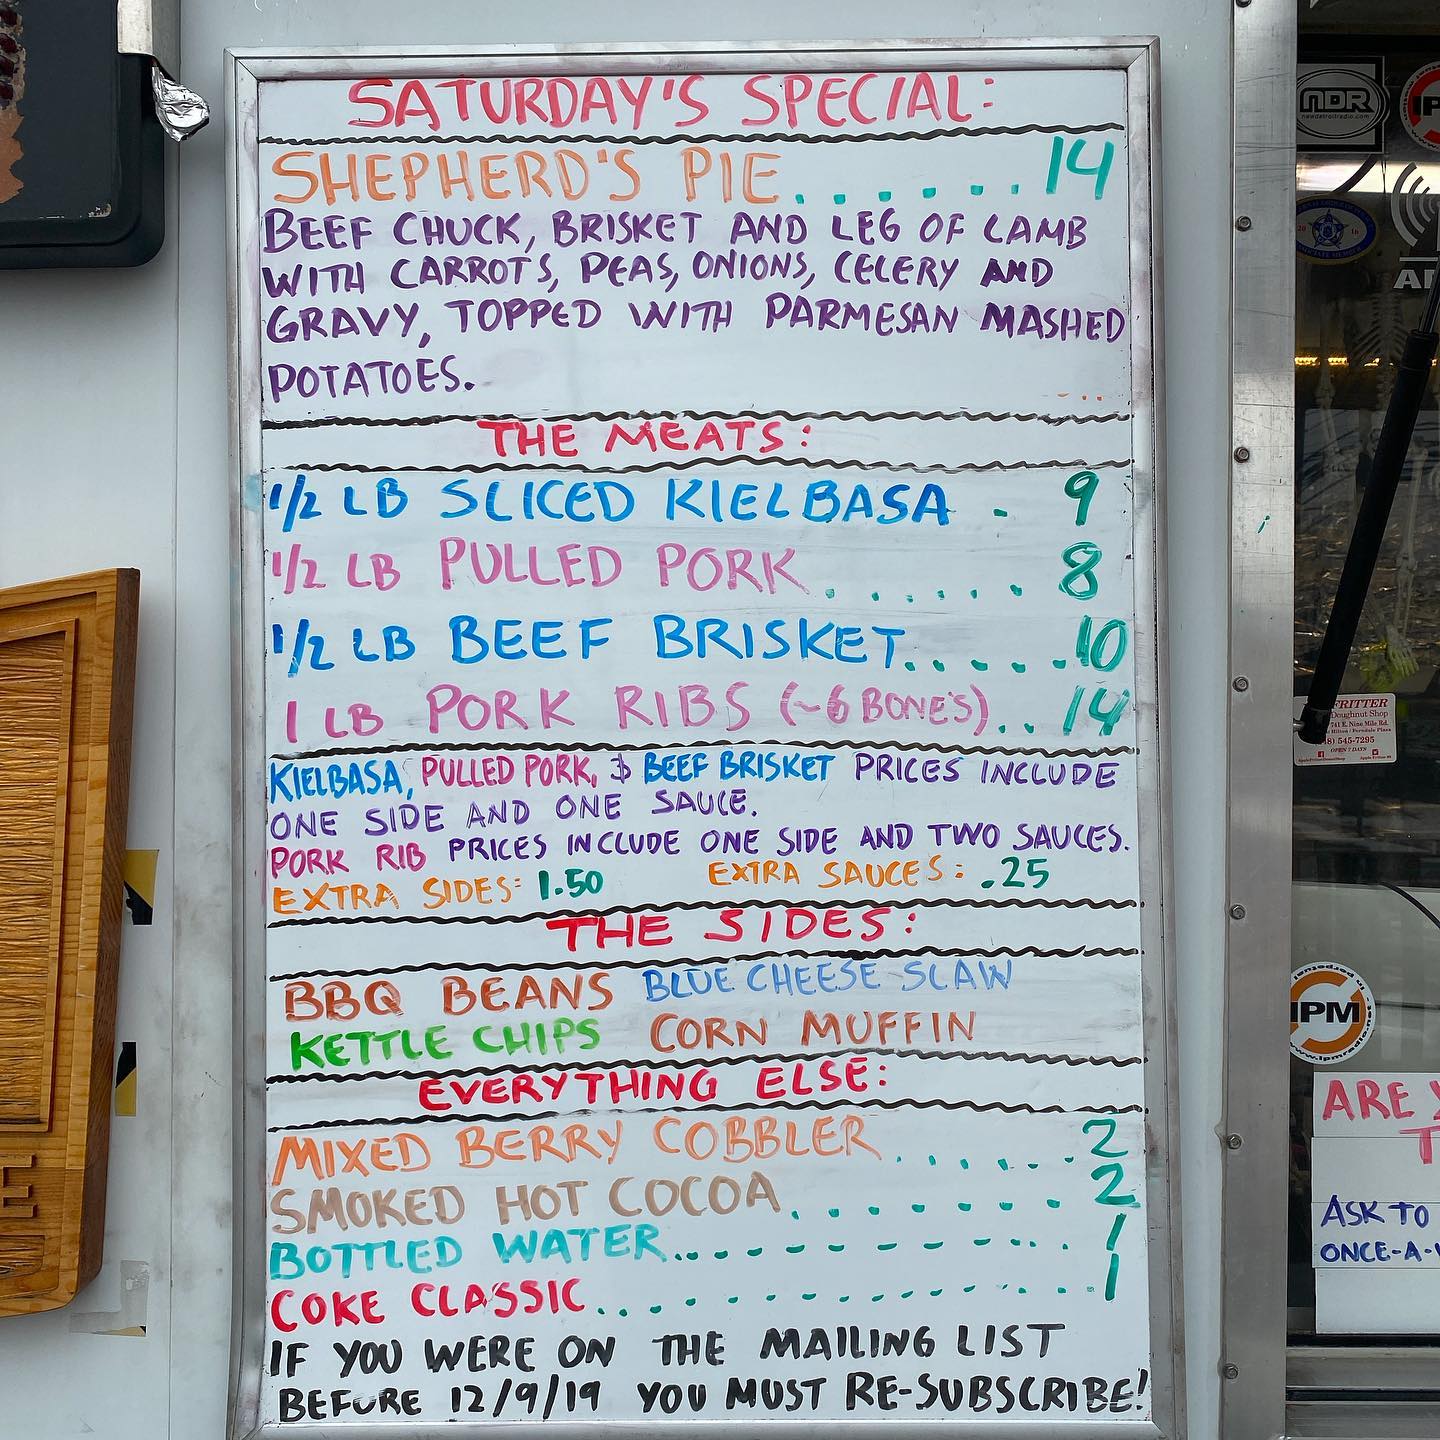 SATURDAY'S SPECIAL:
SHEPHERD'S PIE.......14
BEEF CHUCK, BRISKET AND LEG OF LAMB
WITH CARROTS, PEAS, ONIONS, CELERY AND
GRAVY, TOPPED WITH PARMESAN MASHED
POTATOES.
THE MEATS:
1/2 LB SLICED KIELBASA . 9
1/2 LB PULLED PORK ..... 8
1/2 LB BEEF BRISKET......10
1 LB PORK RIBS (~6 BONE'S)..14
KIELBASA, PULLED PORK, & BEEF BRISKET PRICES INCLUDE
ONE SIDE AND ONE SAUCE.
PORK RIB PRICES INCLUDE ONE SIDE AND TWO SAUCES.
EXTRA SIDES: 1.50 EXTRA SAUCES: .25
THE SIDES:
BBQ BEANS BLUE CHEESE SLAW
KETTLE CHIPS CORN MUFFIN
EVERYTHING ELSE:
MIXED BERRY COBBLER......2
SMOKED HOT COCOA.......2
BOTTLED WATER............1
COKE CLASSIC..............1
IF YOU WERE ON THE MAILING LIST
BEFORE 12/9/19 YOU MUST RE-SUBSCRIBE!
NDR
newdetroitradio.com
IP
20 16
FRITTER
Doughnut Shop
741 E. Nine Mile Rd.
Hilton / Ferndale Plaza
545-7295
OPEN 7 DAYS
IPM
www.ipmradio.net
ARE
T
ASK TO
ONCE-A-
E